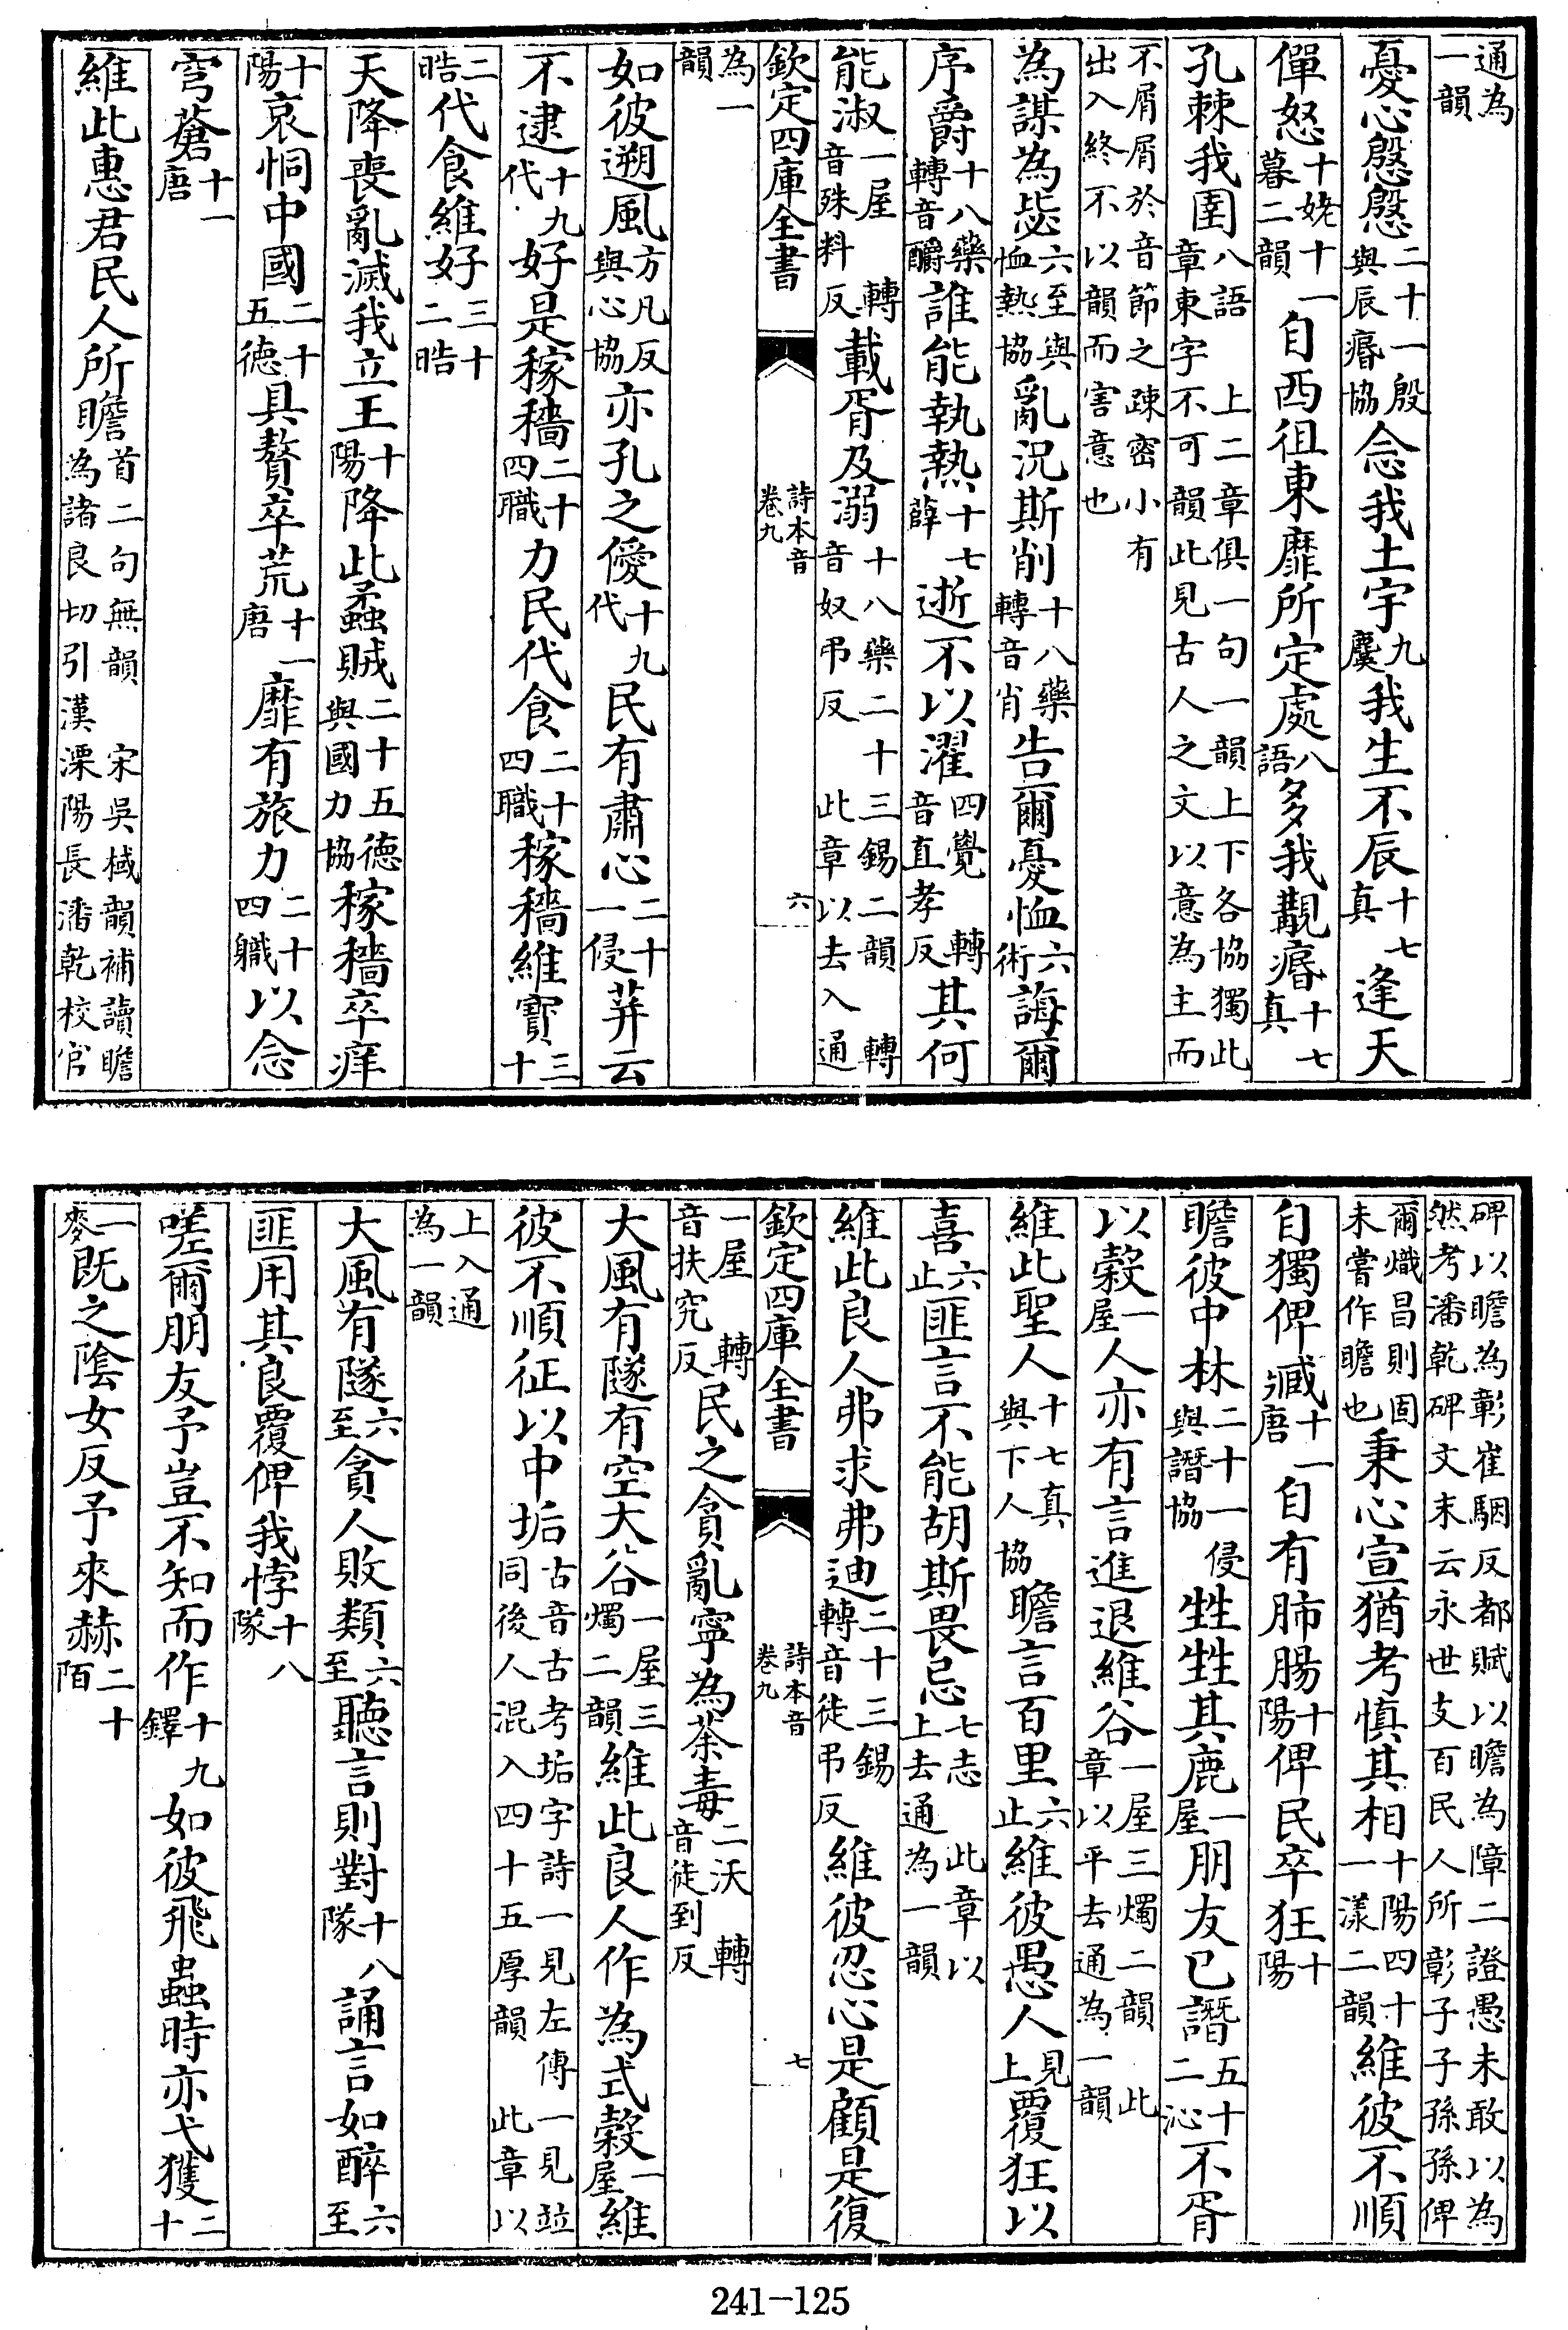 通為一韻
憂心慇慇二十一殷與辰痻協念我土宇九麌我生不辰十七真逢天
僤怒十姥十一暮二韻自西徂東靡所定處八語多我覯痻十七真
孔棘我圉八語上二章俱一句一韻上下各協獨此章東字不可韻此見古人之文以意為主而
不屑屑於音節之疎密小有出入終不以韻而害意也
為謀為毖六至與恤熱協亂況斯削十八藥轉音肖告爾憂恤六術誨爾
序爵十八藥轉音釂誰能執熱十七薛逝不以濯四覺轉音直孝反其何
能淑一屋轉音殊料反載胥及溺十八藥二十三錫二韻轉音奴弔反此章以去入通
欽定四庫全書 詩本音卷九 六
為一韻
如彼遡風方凡反與心協亦孔之僾十九代民有肅心二十一侵荓云
不逮十九代好是稼穡二十四職力民代食二十四職稼穡維寶三十
二晧代食維好三十二晧
天降喪亂滅我立王十陽降此蟊賊二十五德與國力協稼穡卒痒
十陽哀恫中國二十五德具贅卒荒十一唐靡有旅力二十四職以念
穹蒼十一唐
維此惠君民人所瞻首二句無韻宋吳棫韻補讀瞻為諸良切引漢溧陽長潘乾校官
碑以瞻為彰崔駰反都賦以瞻為障二證愚未敢以為然考潘乾碑文末云永世支百民人所彰子子孫孫俾
爾熾昌則固未嘗作瞻也秉心宣猶考慎其相十陽四十一漾二韻維彼不順
自獨俾臧十一唐自有肺腸十陽俾民卒狂十陽
瞻彼中林二十一侵與譖協甡甡其鹿一屋朋友已譖五十二沁不胥
以穀一屋人亦有言進退維谷一屋三燭二韻此章以平去通為一韻
維此聖人十七真與下人協瞻言百里六止維彼愚人見上覆狂以
喜六止匪言不能胡斯畏忌七志此章以上去通為一韻
維此良人弗求弗迪二十三錫轉音徒弔反維彼忍心是顧是復
欽定四庫全書 詩本音卷九 七
一屋轉音扶究反民之貪亂寧為荼毒二沃轉音徒到反
大風有隧有空大谷一屋三燭二韻維此良人作為式穀一屋維
彼不順征以中垢古音古考垢字詩一見左傳一見竝同後人混入四十五厚韻此章以
上入通為一韻
大風有隧六至貪人敗類六至聽言則對十八隊誦言如醉六至
匪用其良覆俾我悖十八隊
嗟爾朋友予豈不知而作十九鐸如彼飛蟲時亦弋獲二十
一麥既之陰女反予來赫二十陌
241-125